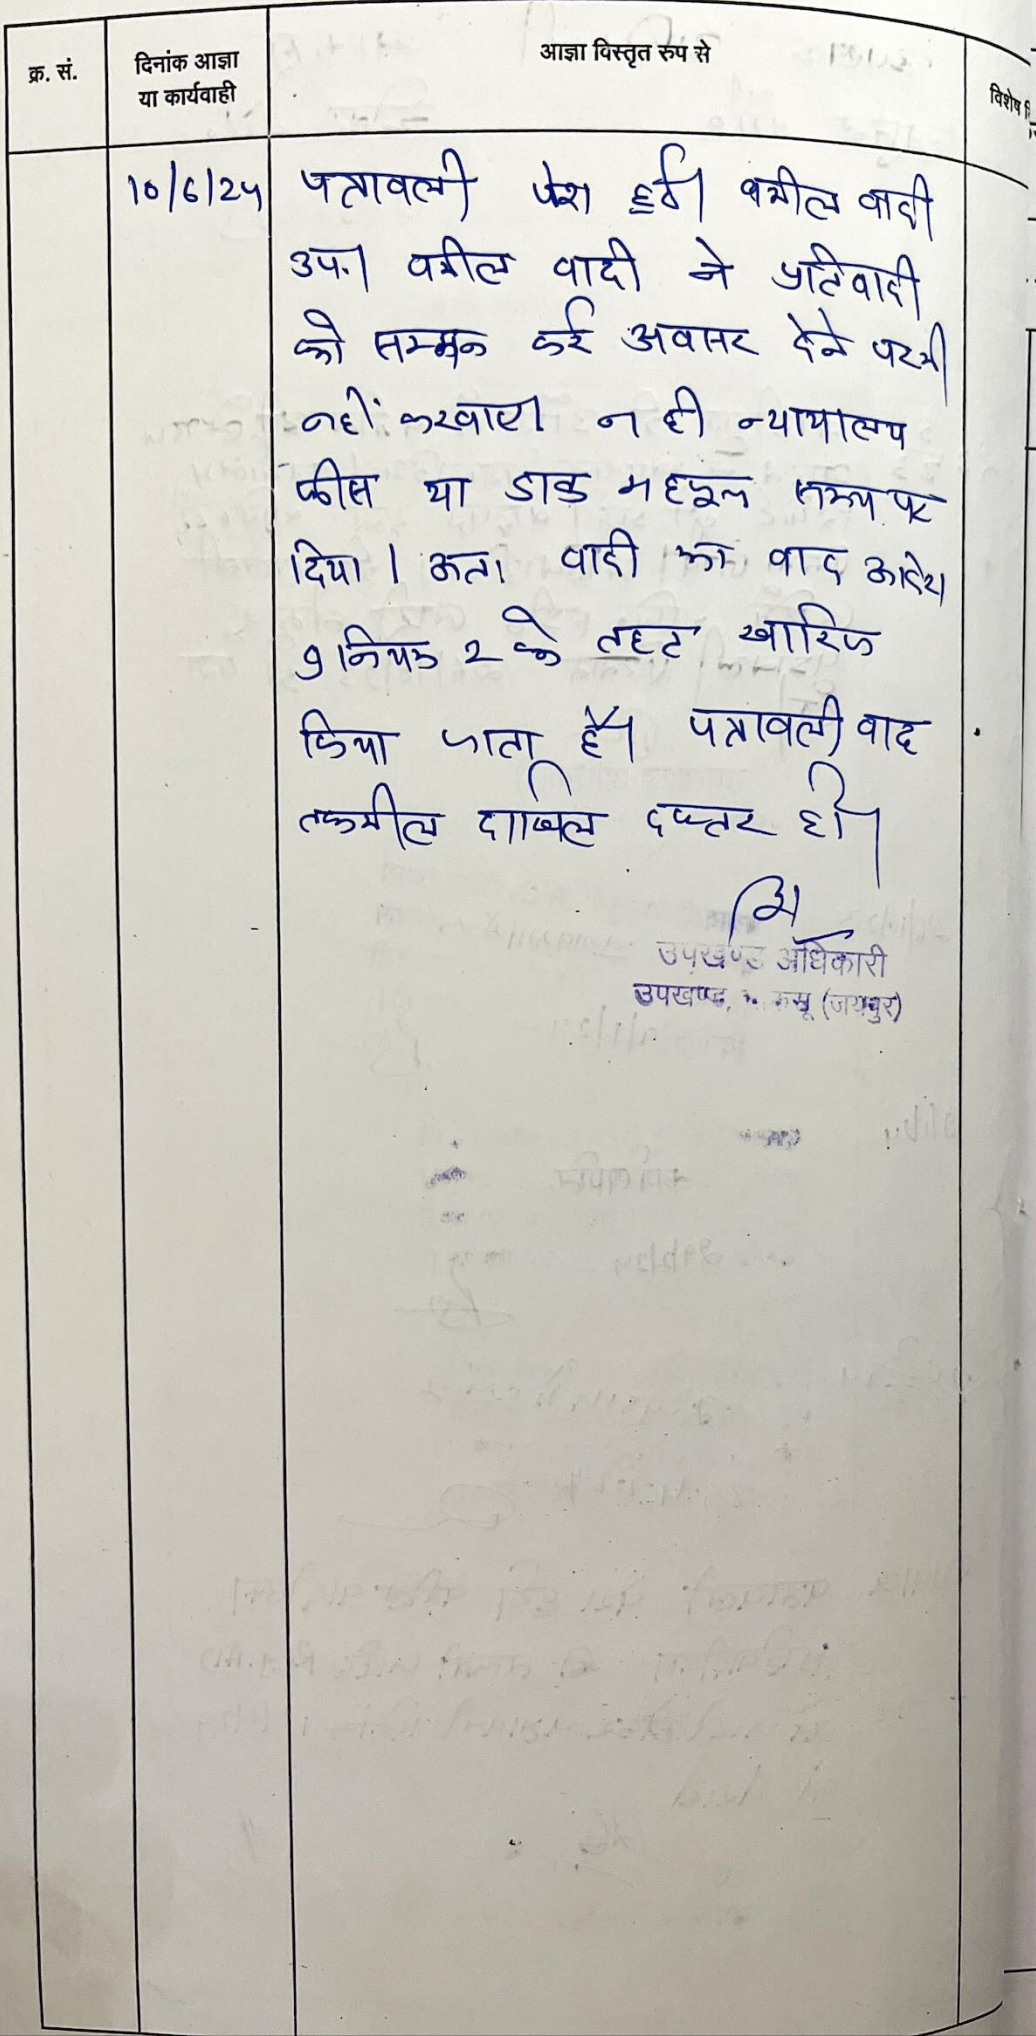 क्र. सं.
दिनांक आज्ञा
या कार्यवाही
आज्ञा विस्तृत रुप से
विशेष
10/6/24
पत्रावली पेश हुई। वकील वादी
उप.। वकील वादी ने प्रतिवादी
को सम्मन कई अवसर देने पर भी
नहीं करवाए। न ही न्यायालय
फीस या डाक महसूल समय पर
दिया। अतः वादी का वाद आदेश
9 नियम 2 के तहत खारिज
किया जाता है। पत्रावली वाद
तकमील दाखिल दफ्तर हो।
उपखण्ड अधिकारी
उपखण्ड, (जयपुर)